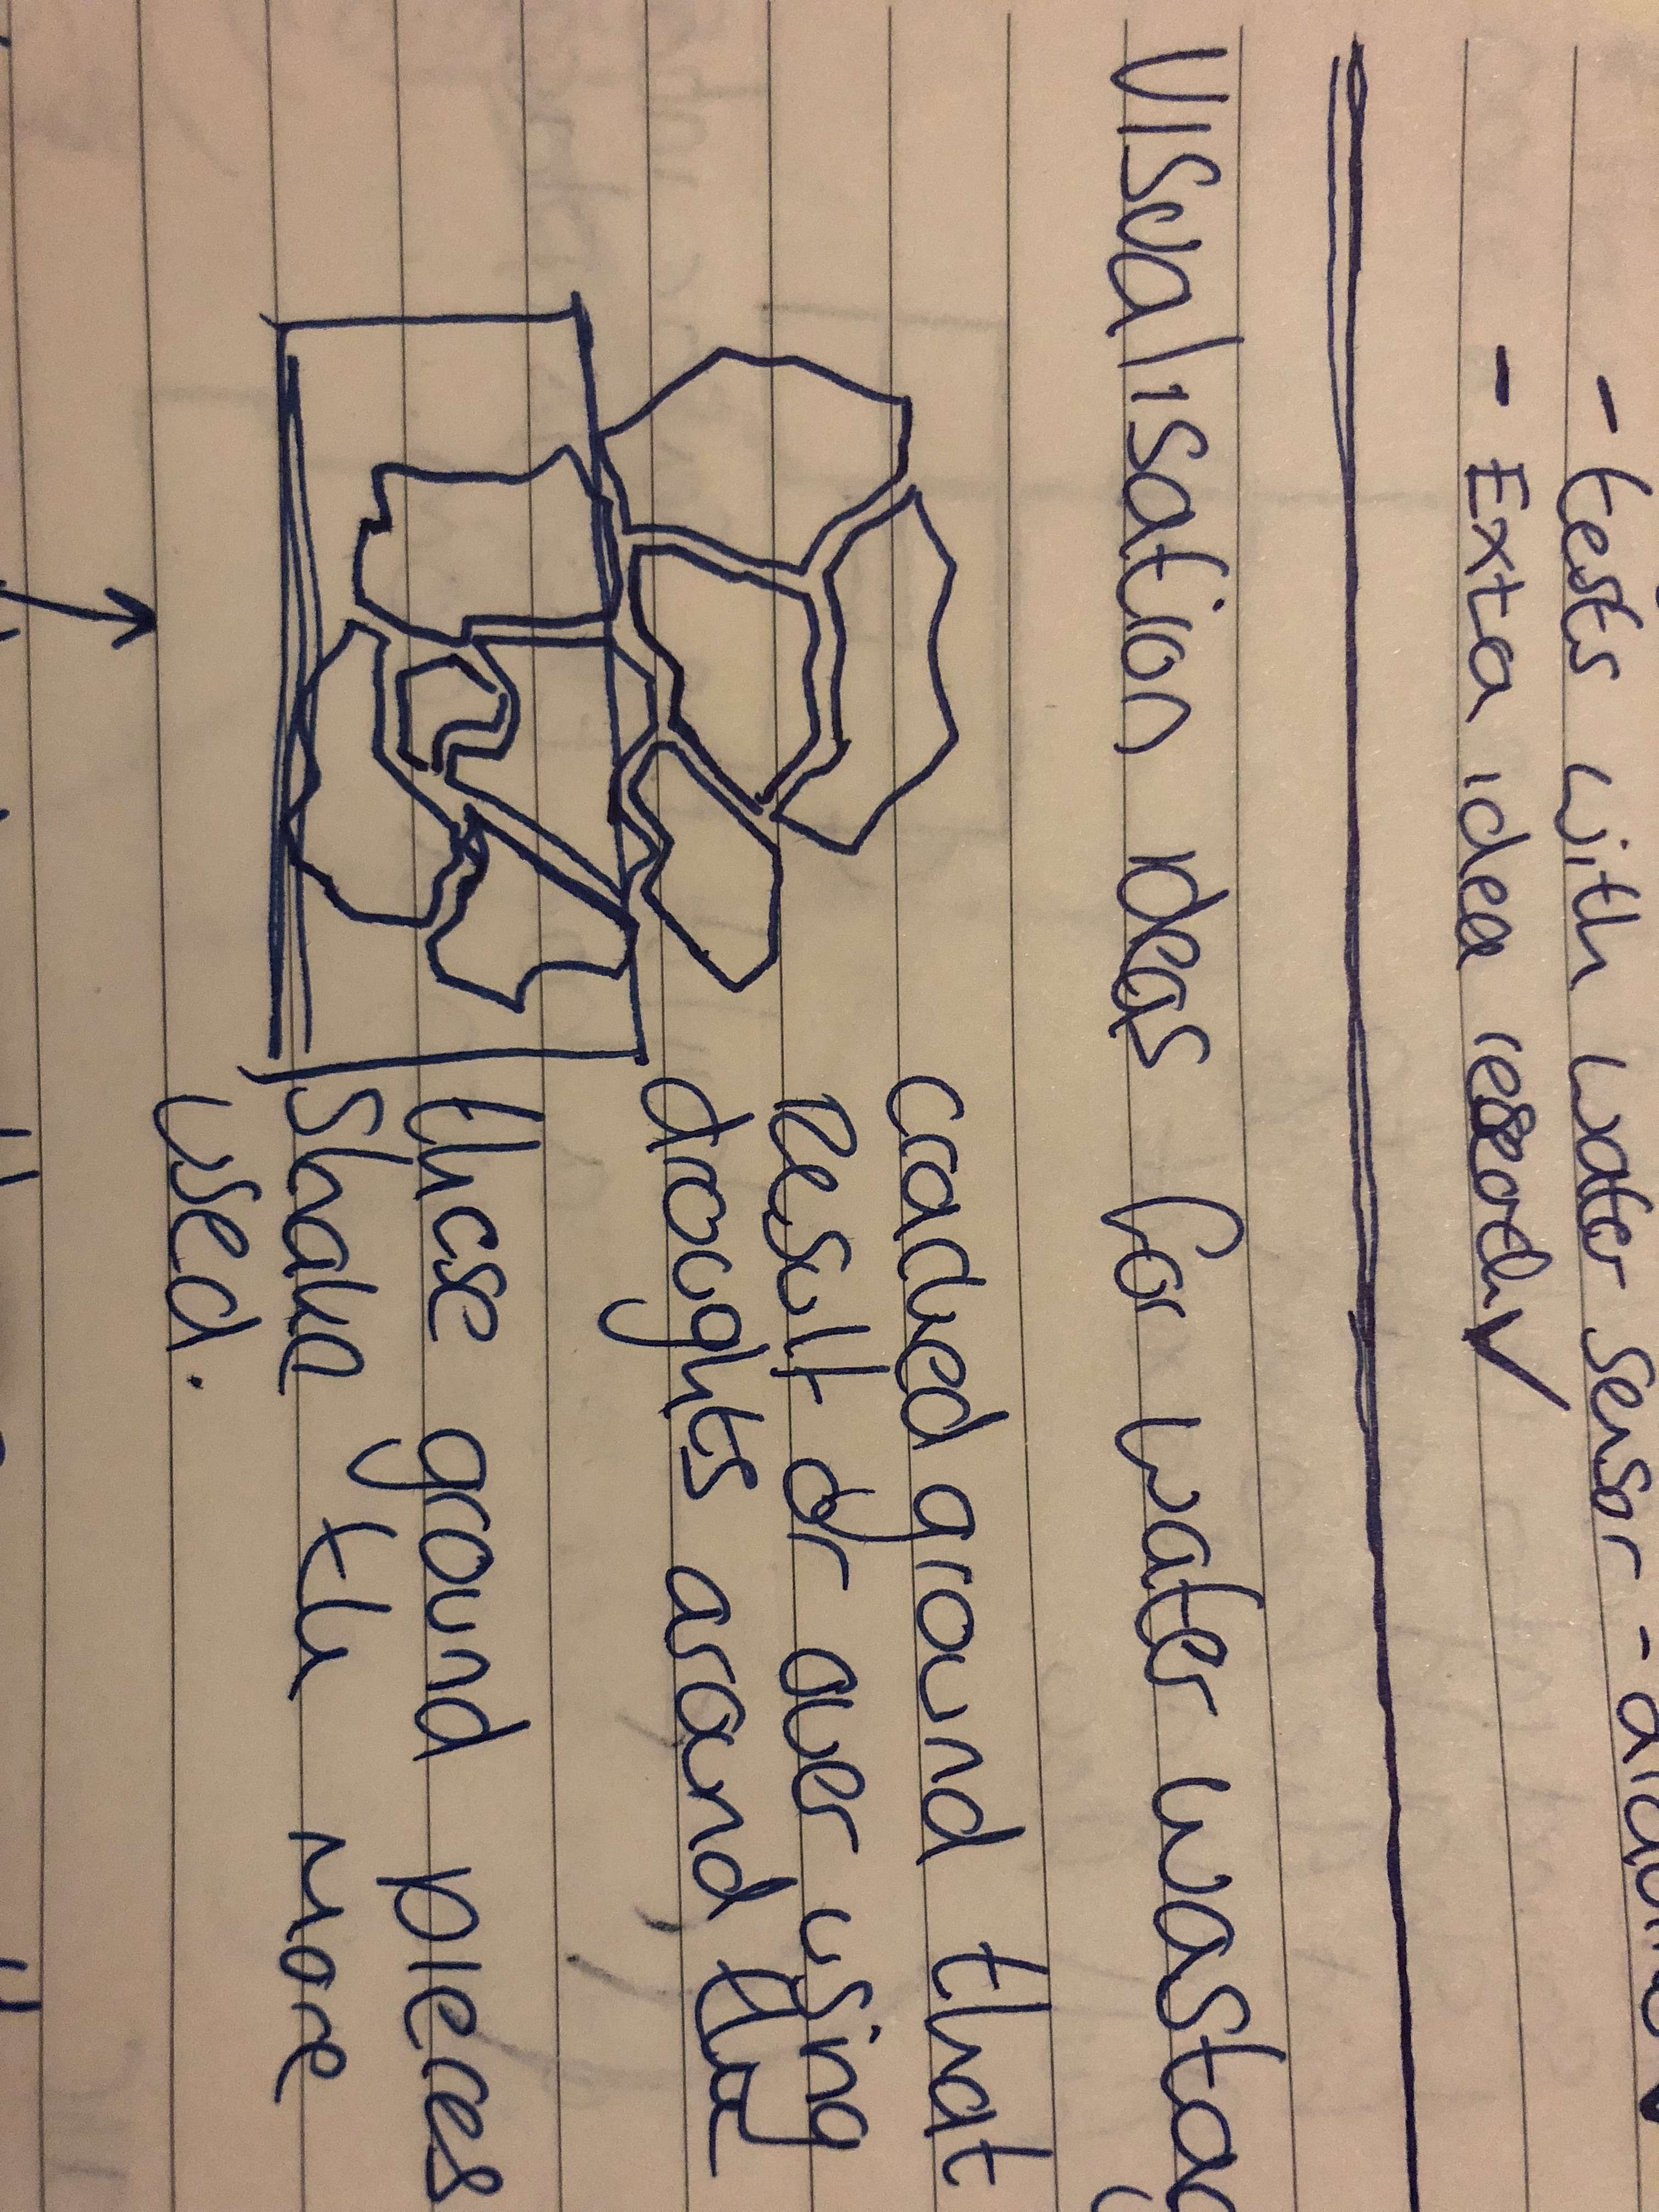 - tests with water sensor -
- Exta idea research ✓
Visualisation ideas for water wastag
cracked ground that
result or over using
droughts around the
these ground pieces
Shake the more
used.